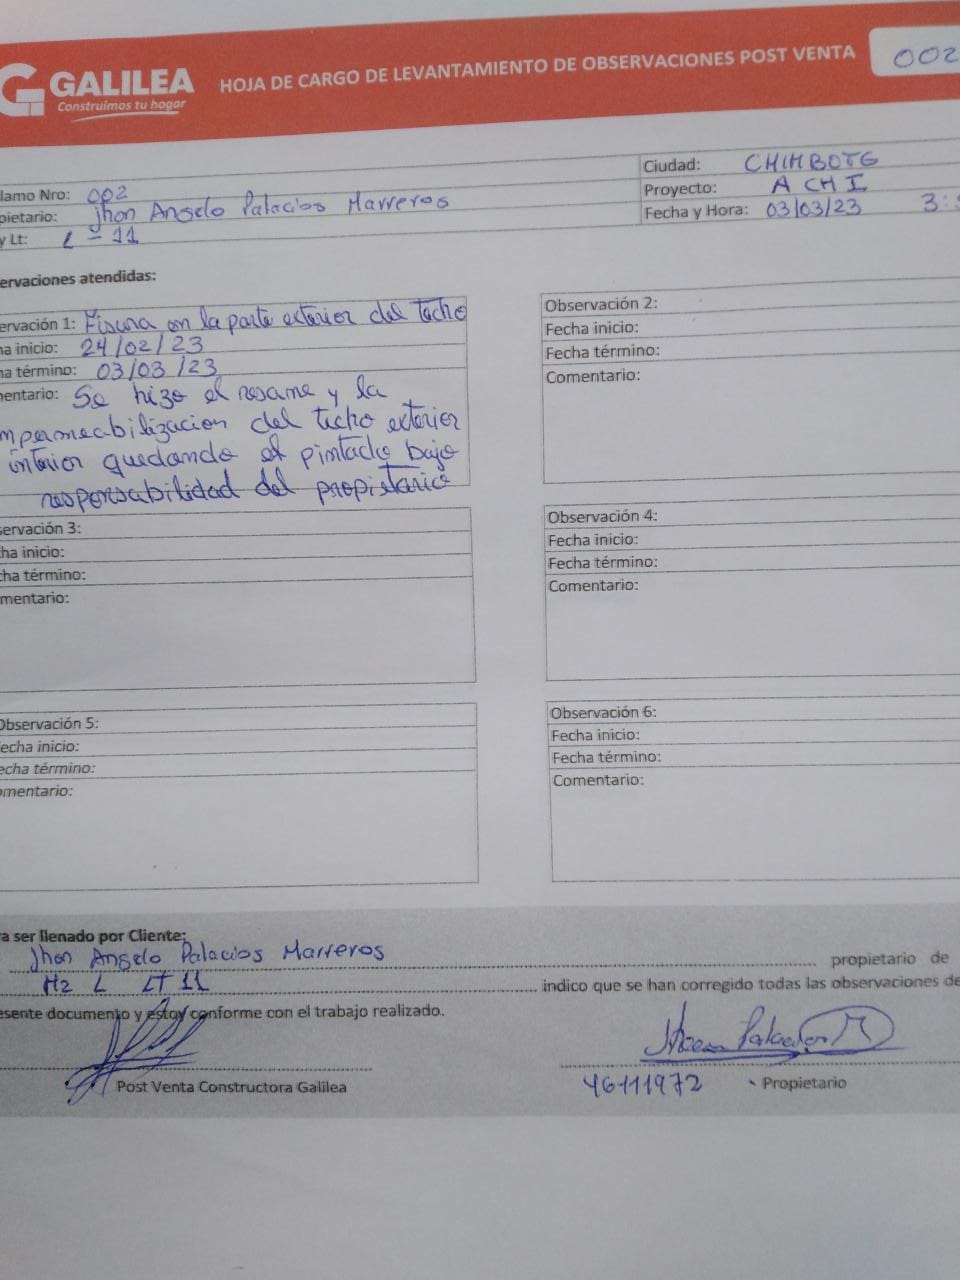 GALILEA
Construimos tu hogar
HOJA DE CARGO DE LEVANTAMIENTO DE OBSERVACIONES POST VENTA
002
lamo Nro: 002
Ciudad: CHIMBOTE
pietario: Jhon Angelo Palacios Marreros
Proyecto: A CHI
y Lt: L - 11
Fecha y Hora: 03/03/23 3:
ervaciones atendidas:
ervación 1: Fisura en la parte exterior del techo
na inicio: 24/02/23
na término: 03/03/23
entario: Se hizo el resane y la
mpermeabilizacion del techo exterior
interior quedando el pintado bajo
responsabilidad del propietario
Observación 2:
Fecha inicio:
Fecha término:
Comentario:
servación 3:
ha inicio:
cha término:
mentario:
Observación 4:
Fecha inicio:
Fecha término:
Comentario:
Observación 5:
echa inicio:
echa término:
omentario:
Observación 6:
Fecha inicio:
Fecha término:
Comentario:
a ser llenado por Cliente:
Jhon Angelo Palacios Marreros propietario de
Mz L LT 11 indico que se han corregido todas las observaciones de
esente documento y estoy conforme con el trabajo realizado.
Post Venta Constructora Galilea
46111972 Propietario